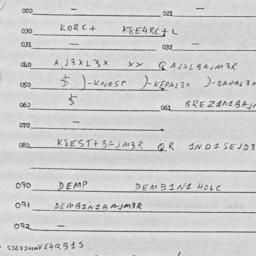 020 – 021 –
030 KORC+ K8E4RC+L
031 – 032 –
040 A,J3XL3X XX QAJ2LBAJM3R
050 $ )-KNOSP )-KEPAL3X )-BARAL3X
060 $ 061 BREZ1N1BAJ
070 –
080 K8EST+BAJM3R QR 1ND1SEJD3
090 DEMP DEMB1N1 HOLC
091 DEMB1N1BAJM3R
092 –